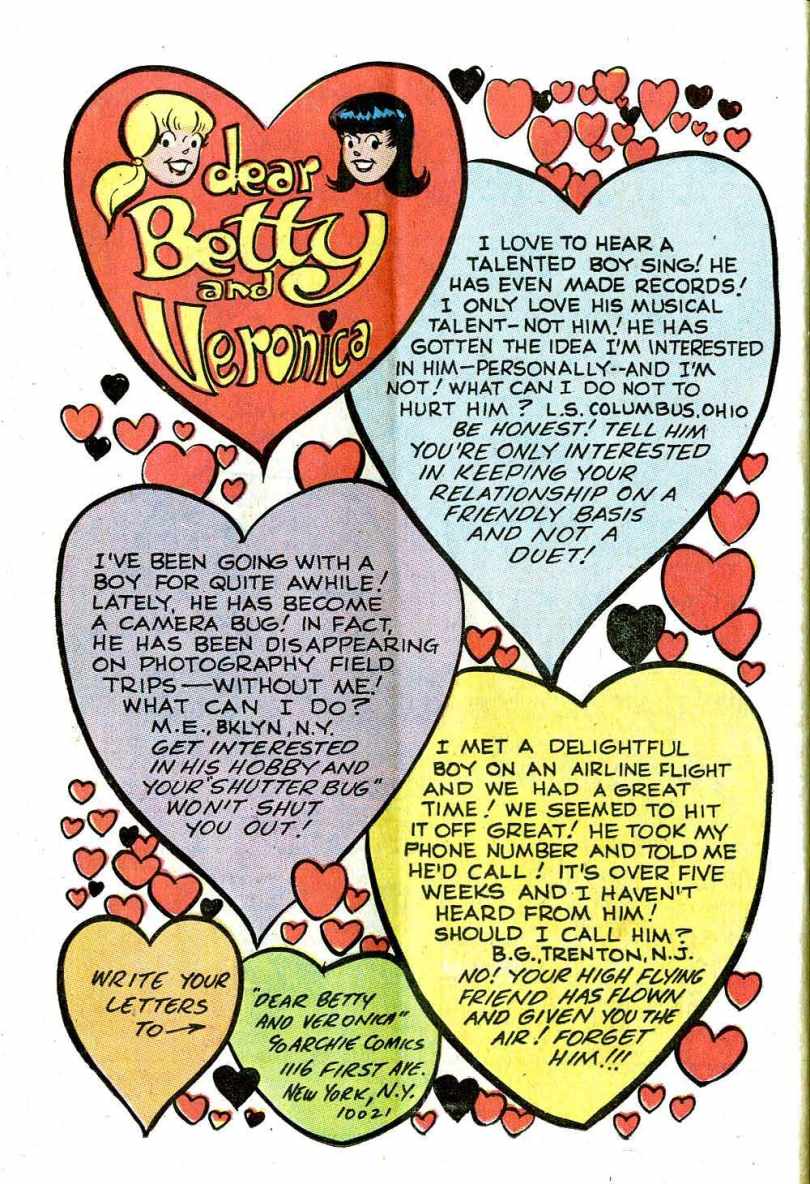 dear
Betty
and
Veronica
I LOVE TO HEAR A
TALENTED BOY SING! HE
HAS EVEN MADE RECORDS!
I ONLY LOVE HIS MUSICAL
TALENT-NOT HIM! HE HAS
GOTTEN THE IDEA I'M INTERESTED
IN HIM—PERSONALLY--AND I'M
NOT! WHAT CAN I DO NOT TO
HURT HIM? L.S. COLUMBUS, OHIO
BE HONEST! TELL HIM
YOU'RE ONLY INTERESTED
IN KEEPING YOUR
RELATIONSHIP ON A
FRIENDLY BASIS
AND NOT A
DUET!
I'VE BEEN GOING WITH A
BOY FOR QUITE AWHILE!
LATELY, HE HAS BECOME
A CAMERA BUG! IN FACT,
HE HAS BEEN DISAPPEARING
ON PHOTOGRAPHY FIELD
TRIPS—WITHOUT ME!
WHAT CAN I DO?
M.E., BKLYN, N.Y.
GET INTERESTED
IN HIS HOBBY AND
YOUR "SHUTTER BUG"
WON'T SHUT
YOU OUT!
I MET A DELIGHTFUL
BOY ON AN AIRLINE FLIGHT
AND WE HAD A GREAT
TIME! WE SEEMED TO HIT
IT OFF GREAT! HE TOOK MY
PHONE NUMBER AND TOLD ME
HE'D CALL! IT'S OVER FIVE
WEEKS AND I HAVEN'T
HEARD FROM HIM!
SHOULD I CALL HIM?
B.G., TRENTON, N.J.
NO! YOUR HIGH FLYING
FRIEND HAS FLOWN
AND GIVEN YOU THE
AIR! FORGET
HIM!!!
WRITE YOUR
LETTERS
TO→
"DEAR BETTY
AND VERONICA"
℅ ARCHIE COMICS
1116 FIRST AVE.
NEW YORK, N.Y.
10021